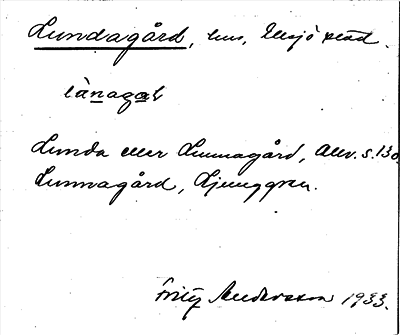 Lundagård, hus, Eksjö stad.
lànagaḷ
Lunda eller Lunnagård, Allv. s. 130.
Lunnagård, Ljunggren.
Fritz Andersson 1933.